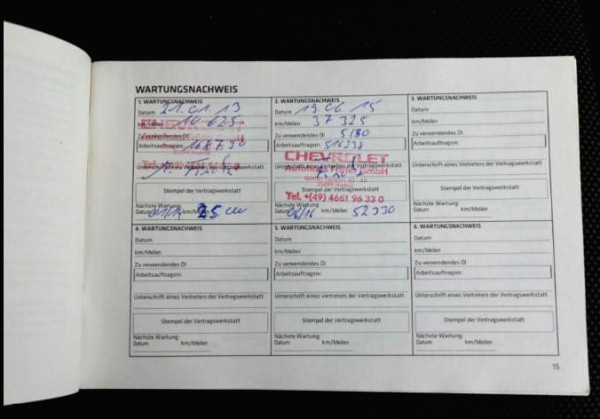 WARTUNGSNACHWEIS
1. WARTUNGSNACHWEIS
Datum 21.01.13
km/Meilen 10 625
Arbeitsauftragsnr.
Unterschrift eines Vertreters der Vertragswerkstatt
Stempel der Vertragswerkstatt
Nächste Wartung:
Datum 01/14 km/Meilen 25
2. WARTUNGSNACHWEIS
Datum 19.06.15
km/Meilen 37 325
Zu verwendendes Öl 5/80
Arbeitsauftragsnr. 516238
CHEVROLET
Unterschrift eines Vertreters der Vertragswerkstatt
Stempel der Vertragswerkstatt
Tel. +(49) 4661 96 33 0
Nächste Wartung:
Datum 06/16 km/Meilen 52330
3. WARTUNGSNACHWEIS
Datum
km/Meilen
Zu verwendendes Öl
Arbeitsauftragsnr.
Unterschrift eines Vertreters der Vertragswerkstatt
Stempel der Vertragswerkstatt
Nächste Wartung:
Datum km/Meilen
4. WARTUNGSNACHWEIS
Datum
km/Meilen
Zu verwendendes Öl
Arbeitsauftragsnr.
Unterschrift eines Vertreters der Vertragswerkstatt
Stempel der Vertragswerkstatt
Nächste Wartung:
Datum km/Meilen
5. WARTUNGSNACHWEIS
Datum
km/Meilen
Zu verwendendes Öl
Arbeitsauftragsnr.
Unterschrift eines Vertreters der Vertragswerkstatt
Stempel der Vertragswerkstatt
Nächste Wartung:
Datum km/Meilen
6. WARTUNGSNACHWEIS
Datum
km/Meilen
Zu verwendendes Öl
Arbeitsauftragsnr.
Unterschrift eines Vertreters der Vertragswerkstatt
Stempel der Vertragswerkstatt
Nächste Wartung:
Datum km/Meilen
15